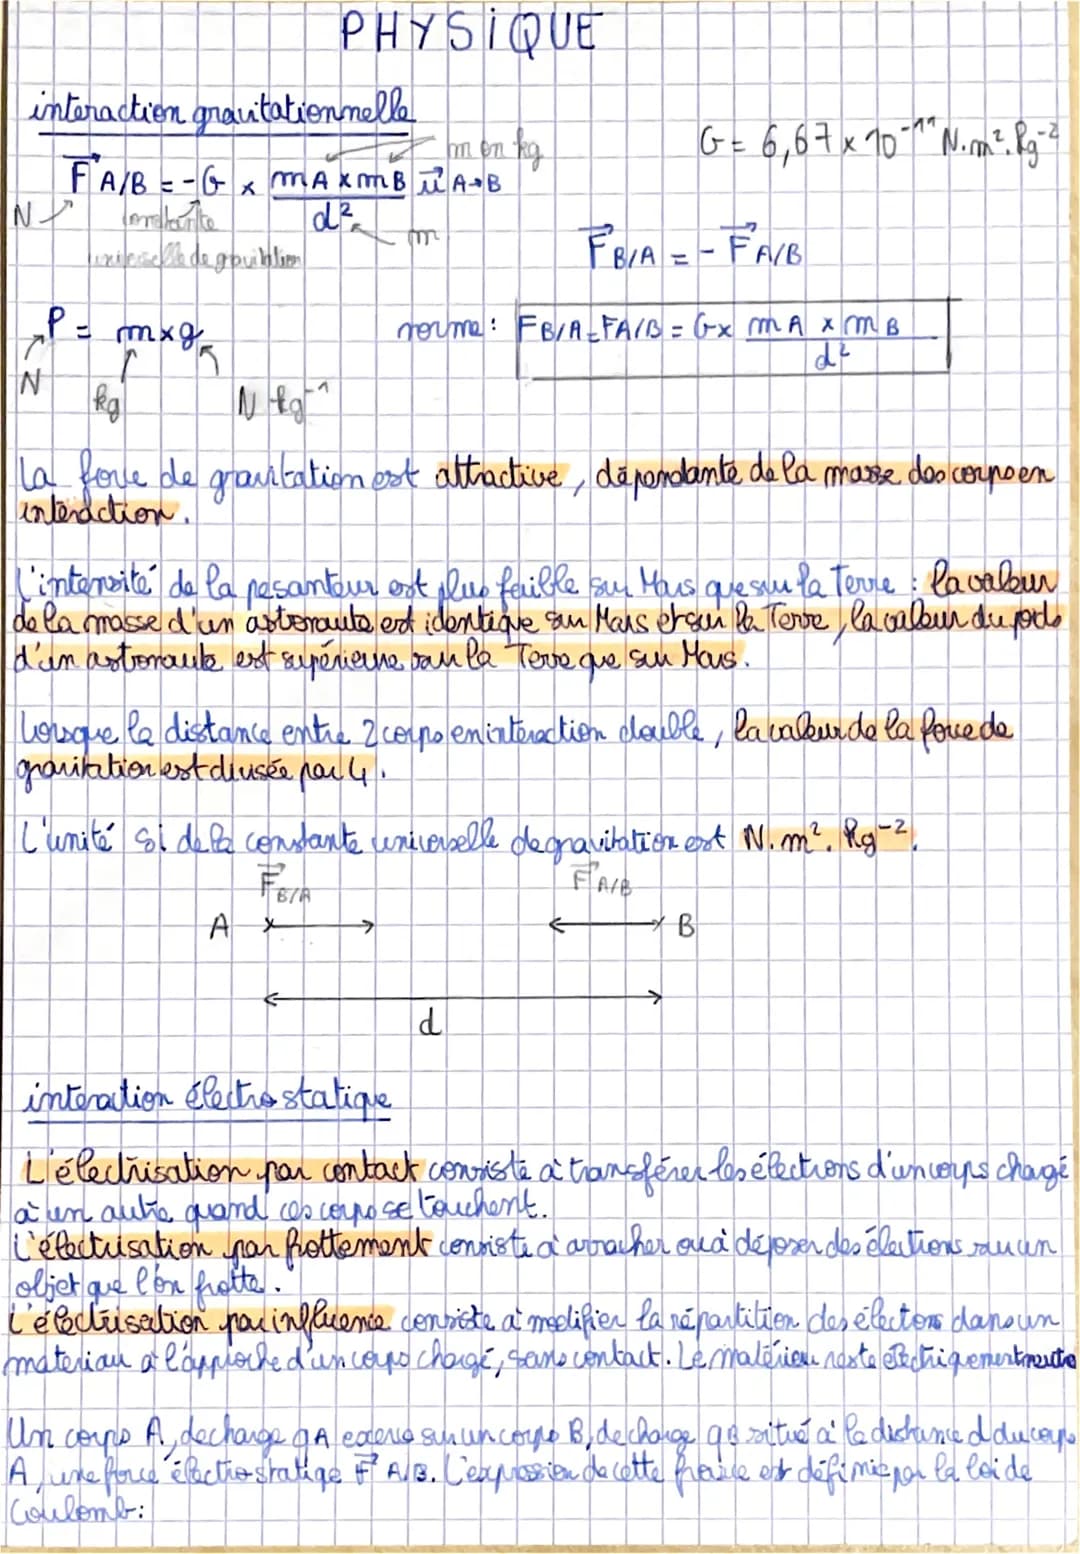 PHYSIQUE
interaction gravitationnelle
m en kg
G = 6,67 x 10⁻¹¹ N.m².kg⁻²
F⃗ A/B = - G x (mA x mB / d²) u⃗ A→B
N
constante
universelle de gravitation
m
F⃗ B/A = - F⃗ A/B
P = m x g
N
kg
N kg⁻¹
norme : FB/A = FA/B = G x (mA x mB / d²)
La force de gravitation est attractive, dépendante de la masse des corps en
interaction.
L'intensité de la pesanteur est plus faible sur Mars que sur la Terre : la valeur
de la masse d'un astronaute est identique sur Mars et sur la Terre, la valeur du poids
d'un astronaute est supérieure sur la Terre que sur Mars.
Lorsque la distance entre 2 corps en interaction double, la valeur de la force de
gravitation est divisée par 4.
L'unité Si de la constante universelle de gravitation est N.m².kg⁻².
F⃗ B/A
F⃗ A/B
A
B
d
interaction électrostatique
L'électrisation par contact consiste à transférer les électrons d'un corps chargé
à un autre quand ces corps se touchent.
L'électrisation par frottement consiste à arracher ou à déposer des électrons sur un
objet que l'on frotte.
L'électrisation par influence consiste à modifier la répartition des électons dans un
materiau à l'approche d'un corps chargé, sans contact. Le matériau reste électriquement neutre
Un corps A, de charge qA exerce sur un corps B, de charge qB situé à la distance d du corps
A, une force électrostatique F⃗ A/B. L'expression de cette force est définie par la loi de
Coulomb :